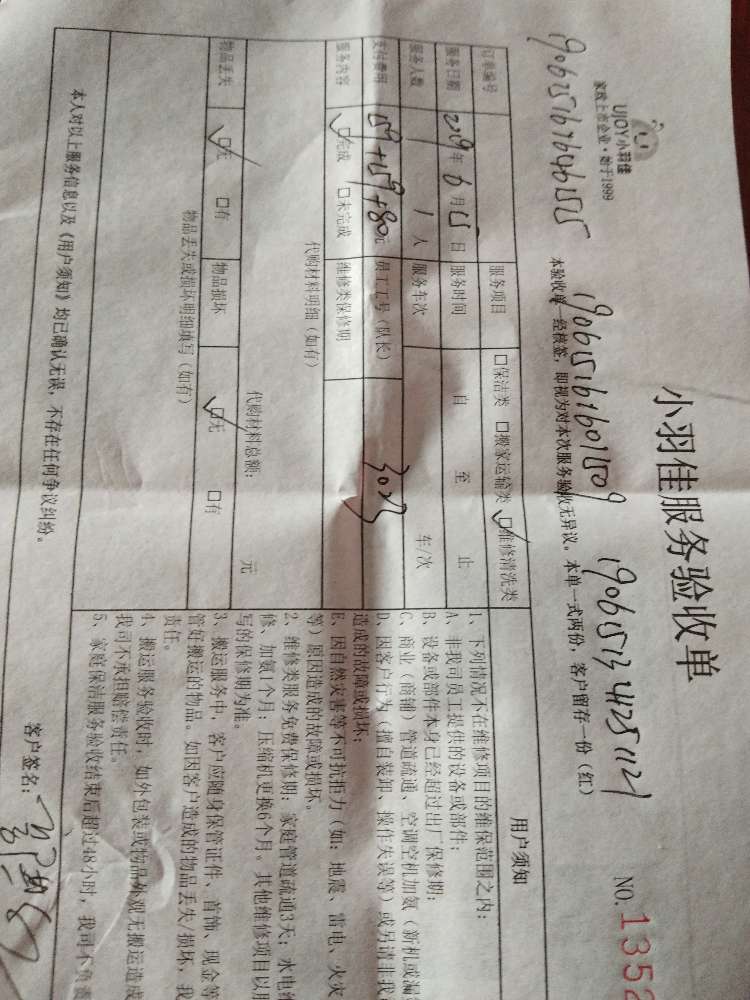 UJOY小羽佳
家政上市企业·始于1999
小羽佳服务验收单
NO.1352
1906251676461525
190615161601509
190615134251121
本验收单一经核签，即视为对本次服务验收无异议。本单一式两份，客户留存一份（红）
订单编号 服务项目 □保洁类 □搬家运输类 ☑维修清洗类
服务日期 2019年6月15日 服务时间 自 至 止
服务人数 1人 服务车次 车/次
支付费用 159+159+80元 员工工号（队长） 3023
服务内容 ☑完成 □未完成 维修类保修期
代购材料明细（如有）
代购材料总额： 元
物品丢失 ☑无 □有 物品损坏 ☑无 □有
物品丢失或损坏明细填写（如有）
本人对以上服务信息以及《用户须知》均已确认无误，不存在任何争议纠纷。
用户须知
1、下列情况不在维修项目的维保范围之内：
A、非我司员工提供的设备或部件；
B、设备或部件本身已经超过出厂保修期；
C、商业（商铺）管道疏通、空调空机加氨（新机或漏
D、因客户行为（擅自装卸、操作失误等）或另请非我
造成的故障或损坏；
E、因自然灾害等不可抗拒力（如：地震、雷电、火灾
等）原因造成的故障或损坏。
2、维修类服务免费保修期：家庭管道疏通3天；水电维
修、加氨1个月；压缩机更换6个月。其他维修项目以服
写的保修期为准。
3、搬运服务中，客户应随身保管证件、首饰、现金等
管好搬运的物品。如因客户造成的物品丢失/损坏，我
责任。
4、搬运服务验收时，如外包装或物品外观无搬运造成
我司不承担赔偿责任。
5、家庭保洁服务验收结束后超过48小时，我司不负责
客户签名：